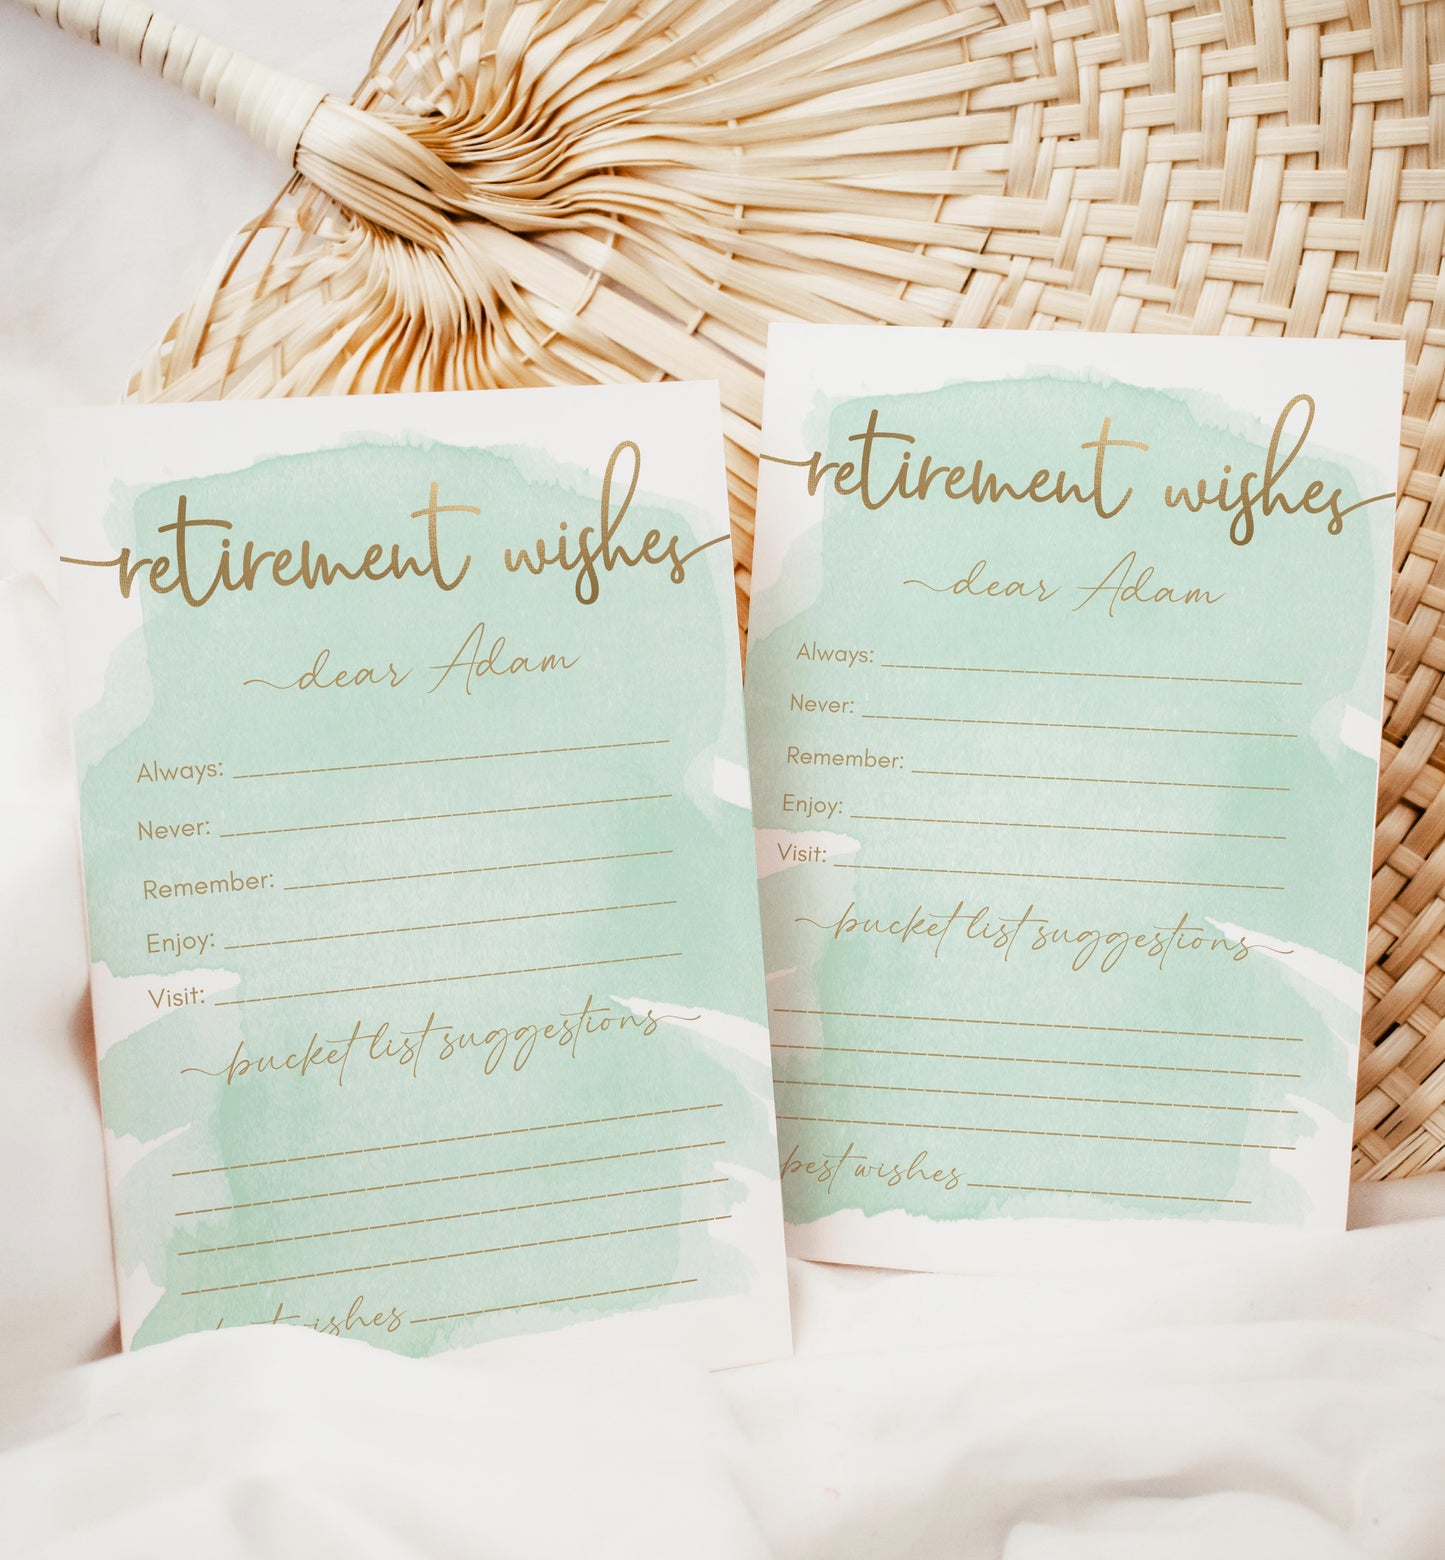 retirement wishes
dear Adam
Always:
Never:
Remember:
Enjoy:
Visit:
bucket list suggestions
wishes
retirement wishes
dear Adam
Always:
Never:
Remember:
Enjoy:
Visit:
bucket list suggestions
best wishes